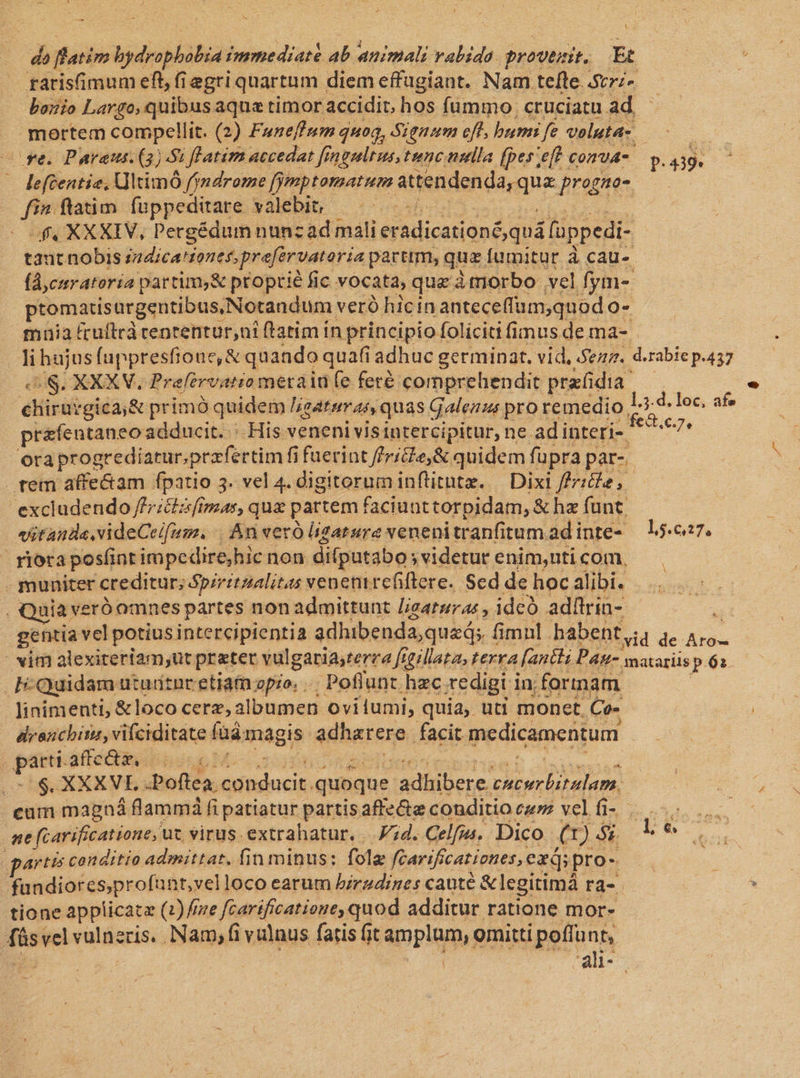 do ſtatim hydrophobia immediatè ab animali rabido provenit. Et
rarisſimum eſt, ſi ægri quartum diem effugiant. Nam teſte Scri-
bonio Largo, quibus aquæ timor accidit, hos ſummo cruciatu ad
mortem compellit. (2) Funeſtum quoq, Signum eſt, humi ſe voluta-
re. Paræus. (3) Si ſtatim accedat ſingultus, tunc nulla ſpes eſt conva- p. 439.
leſcentiæ. Ultimò ſyndrome ſymptomatum attendenda, quæ progno-
ſin ſtatim ſuppeditare valebit,
§. XXXIV. Pergédum nunc ad mali eradicationé, quá ſuppedi-
tant nobis indicationes, præſervatoria partim, quæ ſumitur à cau-
ſâ, curatoria partim, & propriè ſic vocata, quæ à morbo vel ſym-
ptomatis urgentibus. Notandum verò hìc in anteceſſum, quod o-
mnia fruſtrà tententur, ni ſtatim in principio ſoliciti ſimus de ma-
li hujus ſuppresſione, & quando quaſi adhuc germinat. vid. Senn. d. rabie p. 437
§. XXXV. Præſervatio mera in ſe ferè comprehendit præſidia
chirurgica, & primò quidem ligaturas, quas Galenus pro remedio l. 3. d. loc. afe
præſentaneo adducit. His veneni vis intercipitur, ne ad interi- ſect. c. 7.
ora progrediatur, præſertim ſi fuerint ſtrictæ, & quidem ſupra par-
tem affectam ſpatio 3. vel 4. digitorum inſtitutæ. Dixi ſtrictæ,
excludendo ſtrictisſimas, quæ partem faciunt torpidam, & hæ ſunt
vitandæ, vide Celſum. An verò ligaturæ veneni tranſitum ad inte- l. 5. c. 27.
riora posſint impedire, hìc non diſputabo; videtur enim, uti com
muniter creditur, Spiritualitas veneni reſiſtere. Sed de hoc alibi.
Quia verò omnes partes non admittunt ligaturas, ideò adſtrin-
gentia vel potius intercipientia adhibenda, quæq; ſimul habent vid de Aro-
vim alexiteriam, ut præter vulgaria, terra ſigillata, terra ſancti Pau- matariis p 62
li. Quidam utuntur etiam opio. Poſſunt hæc redigi in formam
linimenti, & loco ceræ, albumen ovi ſumi, quia, uti monet Co-
dronchius, viſciditate ſuâ magis adhærere facit medicamentum
parti affectæ.
§. XXXVI. Poſtea conducit quoque adhibere cucurbitulam
cum magnâ flammâ ſi patiatur partis affectæ conditio cum vel ſi-
ne ſcarificatione, ut virus extrahatur. Vid. Celſus. Dico (1) Si l. c.
partis conditio admittat. ſin minus: ſolæ ſcarificationes, exq; pro-
fundiores, proſunt, vel loco earum hirudines cautè & legitimâ ra-
tione applicatæ (2) ſine ſcarificatione, quod additur ratione mor-
ſûs vel vulneris. Nam, ſi vulnus ſatis ſit amplum, omitti poſſunt,
ali-